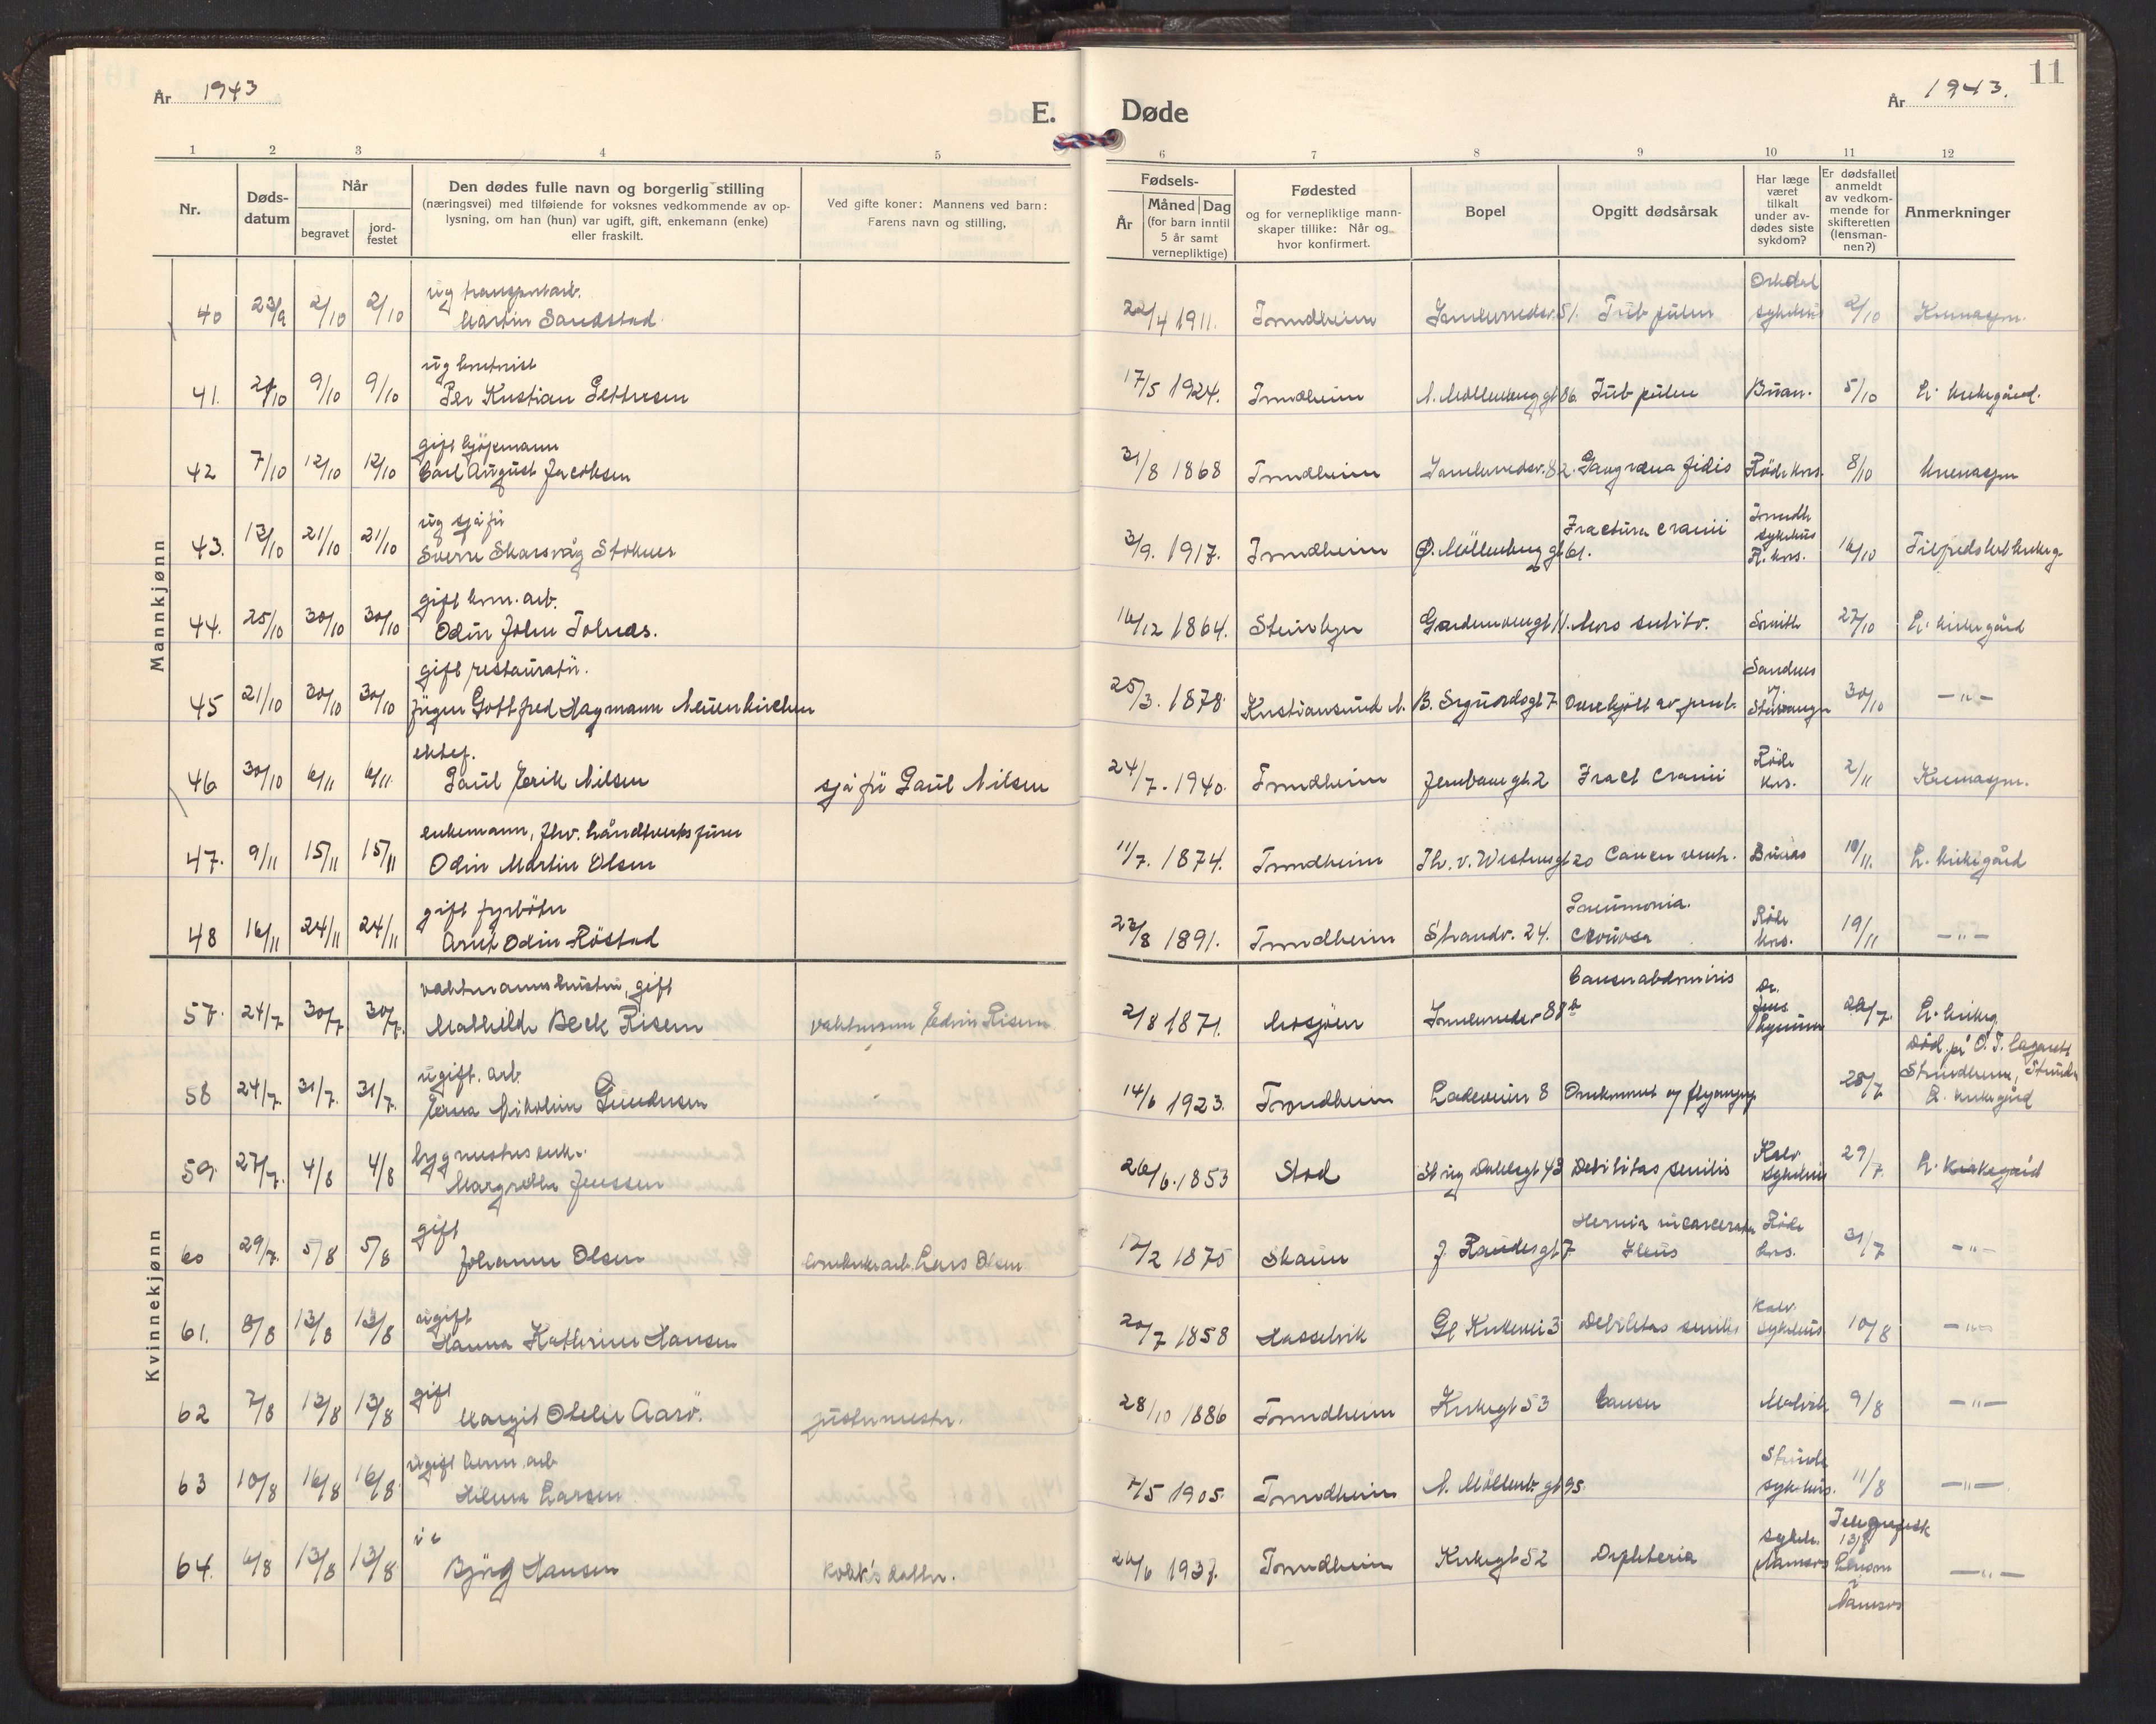 År 1943
E.
Døde
År 1943.
11
1 2 3 4 5
6 7 8 9 10 11 12
Nr.
Døds-
datum
Når
begravet
jord-
festet
Den dødes fulle navn og borgerlig stilling
(næringsvei) med tilføiende for voksnes vedkommende av op-
lysning, om han (hun) var ugift, gift, enkemann (enke)
eller fraskilt.
Ved gifte koner: Mannens ved barn:
Farens navn og stilling,
Fødsels-
År
Måned Dag
(for barn inntil
5 år samt
vernepliktige)
Fødested
og for vernepliktige mann-
skaper tillike: Når og
hvor konfirmert.
Bopel
Opgitt dødsårsak
Har læge
været
tilkalt
under av-
dødes siste
sykdom?
Er dødsfallet
anmeldt
av vedkom-
mende for
skifteretten
(lensman-
nen?)
Anmerkninger
Mannkjønn
ug transportarb.
40 23/9 2/10 2/10 Martin Sandstad
22/4 1911. Trondheim 51. Tub pulm
sykehus 2/10
ug
41. 9/10 9/10 Per Kristian Pettersen
17/5 1924. Trondheim N. Møllenberg gt 86 Tub pulm Buan. 5/10 L. kirkegård.
gift kjøpmann
42 7/10 12/10 12/10 Carl August Jacobsen
31/8 1868 Trondheim 82. Gangræna Røde kors. 8/10
ug sjåfør
43. 13/10 21/10 21/10 Sverre Skarsvåg Stokner
3/9. 1917. Trondheim Ø. Møllenberg gt 61. Fractura cranii
Trondh
sykehus
R. kors. 16/10
gift kom. arb.
44. 25/10 30/10 30/10 Odin John Tolnæs.
16/12 1864. Steinkjer Mors subito. 27/10 L. kirkegård
gift restauratør.
45 21/10 30/10 30/10 Jürgen Gottfred Hagmann Neuenkirchen
25/3. 1878. Kristiansund N. B. Sigurdsgt 7 Overkjørt av
Sandnes
v.
Stavanger 30/10 — " —
ektef.
46 30/10 6/11 6/11 Paul Erik Nilsen sjåfør Paul Nilsen
24/7. 1940. Trondheim Jernbanegt. 2 Fract cranii Røde
kors. 2/11
enkemann, fhv. håndverksfører
47. 9/11 15/11 15/11 Odin Martin Olsen
11/7. 1874. Trondheim Th. v. Westensgt 20 Cancer ventr. 10/11. L. kirkegård
gift fyrbøter
48 16/11 24/11 24/11 Arnt Odin Røstad
23/8 1891. Trondheim Strandv. 24. Pneumonia
crouosa Røde
kors. 19/11 — " —
Kvinnekjønn
vaktmannshustru, gift
57. 24/7 30/7 30/7. Mathilde Beck Risem vaktmann Edvin Risem
2/8 1871. Mosjøen Cancer abdominis
Dr.
Jens L. kirkeg.
ugift. arb.
58 24/7. 31/7. 31/7. Erna Nikoline Gundersen
14/6 1923. Trondheim Ladeveien 8 Omkommet og flyangrep 28/7
Død på O. T. Lazarett
Strindheim, Strinda
L. kirkegård
bygmesters enke.
59. 27/7. 4/8 4/8 Margrethe Jenssen
26/6. 1853 Stod 43 Debilitas senilis Kalv
sykehus 29/7. L. kirkegård
gift
60 29/7. 5/8 5/8 Johanna Olsen Lars Olsen
12/2 1875 Skaun J. Randesgt 7. Hernia incarcerata
Ileus Røde
kors. 31/7 — " —
ugift
61. 8/8 13/8 13/8 Hanna Kathrine Hansen
20/7 1858 Hasselvik Gl Kirkevei 3 Debilitas senilis Kalv.
sykehus 10/8 — " —
gift
62 7/8 13/8 13/8 Margit Otelie Aarø.
28/10 1886 Trondheim Kirkegt 53 Cancer Malvik 9/8 — " —
ugift arb
63 10/8 16/8 16/8. Hilma Larsen
7/5 1905. Trondheim N. Møllenb. gt 95. Strinda
sykehus. 11/8 — " —
64. 6/8 13/8 13/8 Bjørg Hansen kokk's datter.
26/6 1937. Trondheim Kirkegt 52 Difteria sykeh.
Namsos
Telegrafisk
13/8
Lensm
i
Namsos — " —